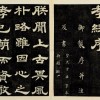 孝經序
御製序并注
及書
朕聞上古其風
朴略雖因心之
孝已萌而資敬